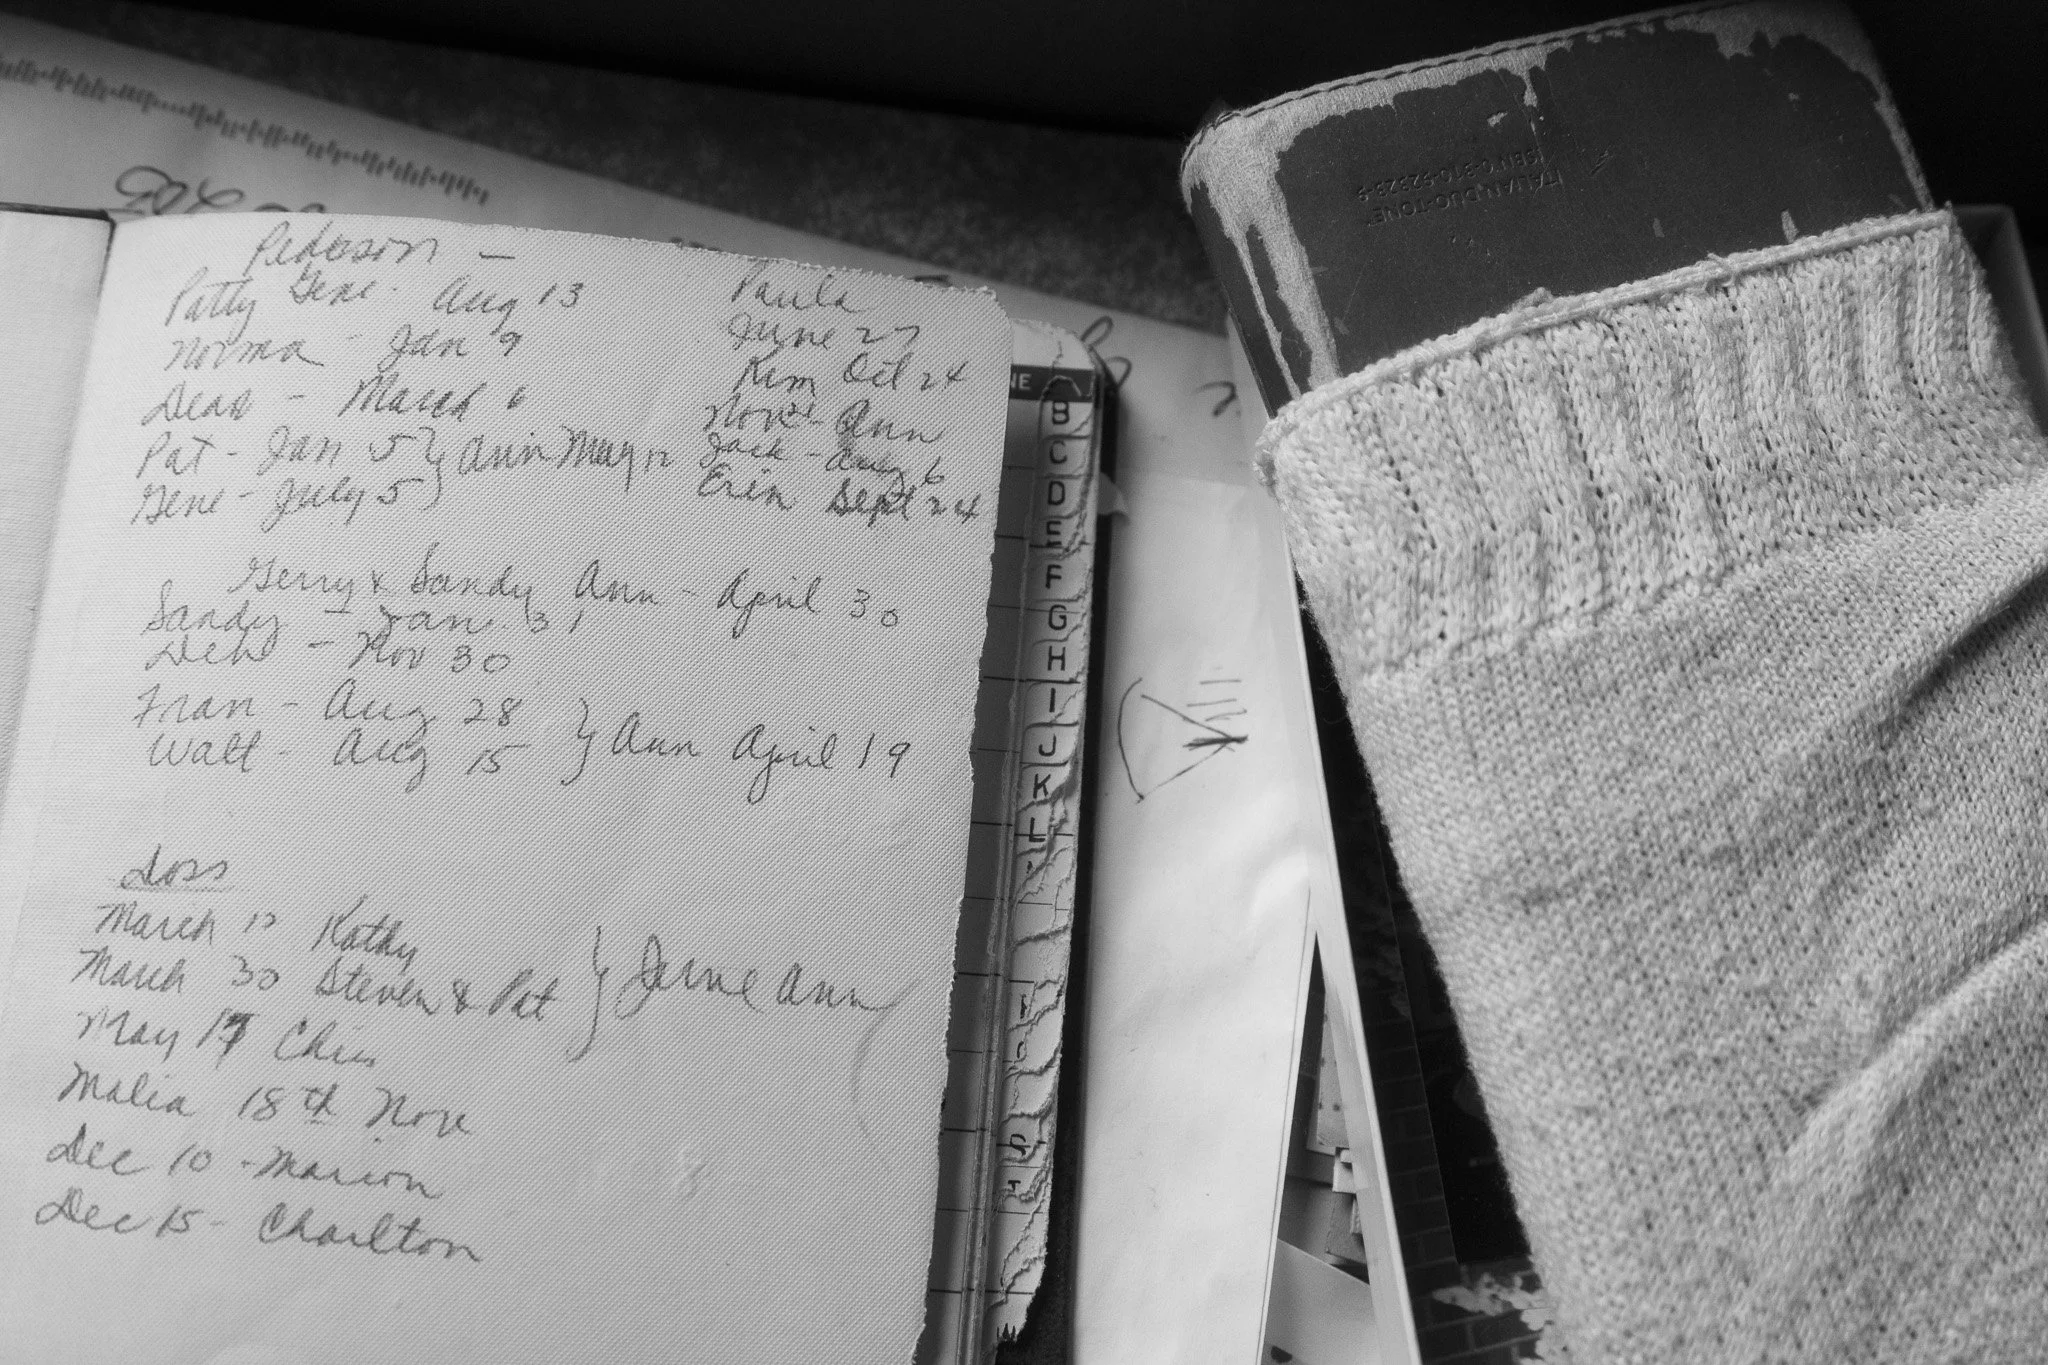 Pederson -
Patty Gene - Aug 13
Norma - Jan 9
Dean - March 6
Pat - Jan 5 } Ann May 12
Gene - July 5
Paula
June 27
Kim Oct 24
Nov - Ann
Jack - Aug 6
Erin Sept 24
Gerry & Sandy Ann - April 30
Sandy - Jan. 31
Deb - Nov 30
Fran - Aug 28 } Ann April 19
Walt - Aug 15
March Kathy
March 30 Steven & Pat } June Ann
May 17 Chris
Malia 18th Nov
Dec 10 - Marion
Dec 15 - Charlton
NE
B
C
D
E
F
G
H
I
J
K
L
ITALIAN DUO-TONE™
ISBN 0-310-92323-9